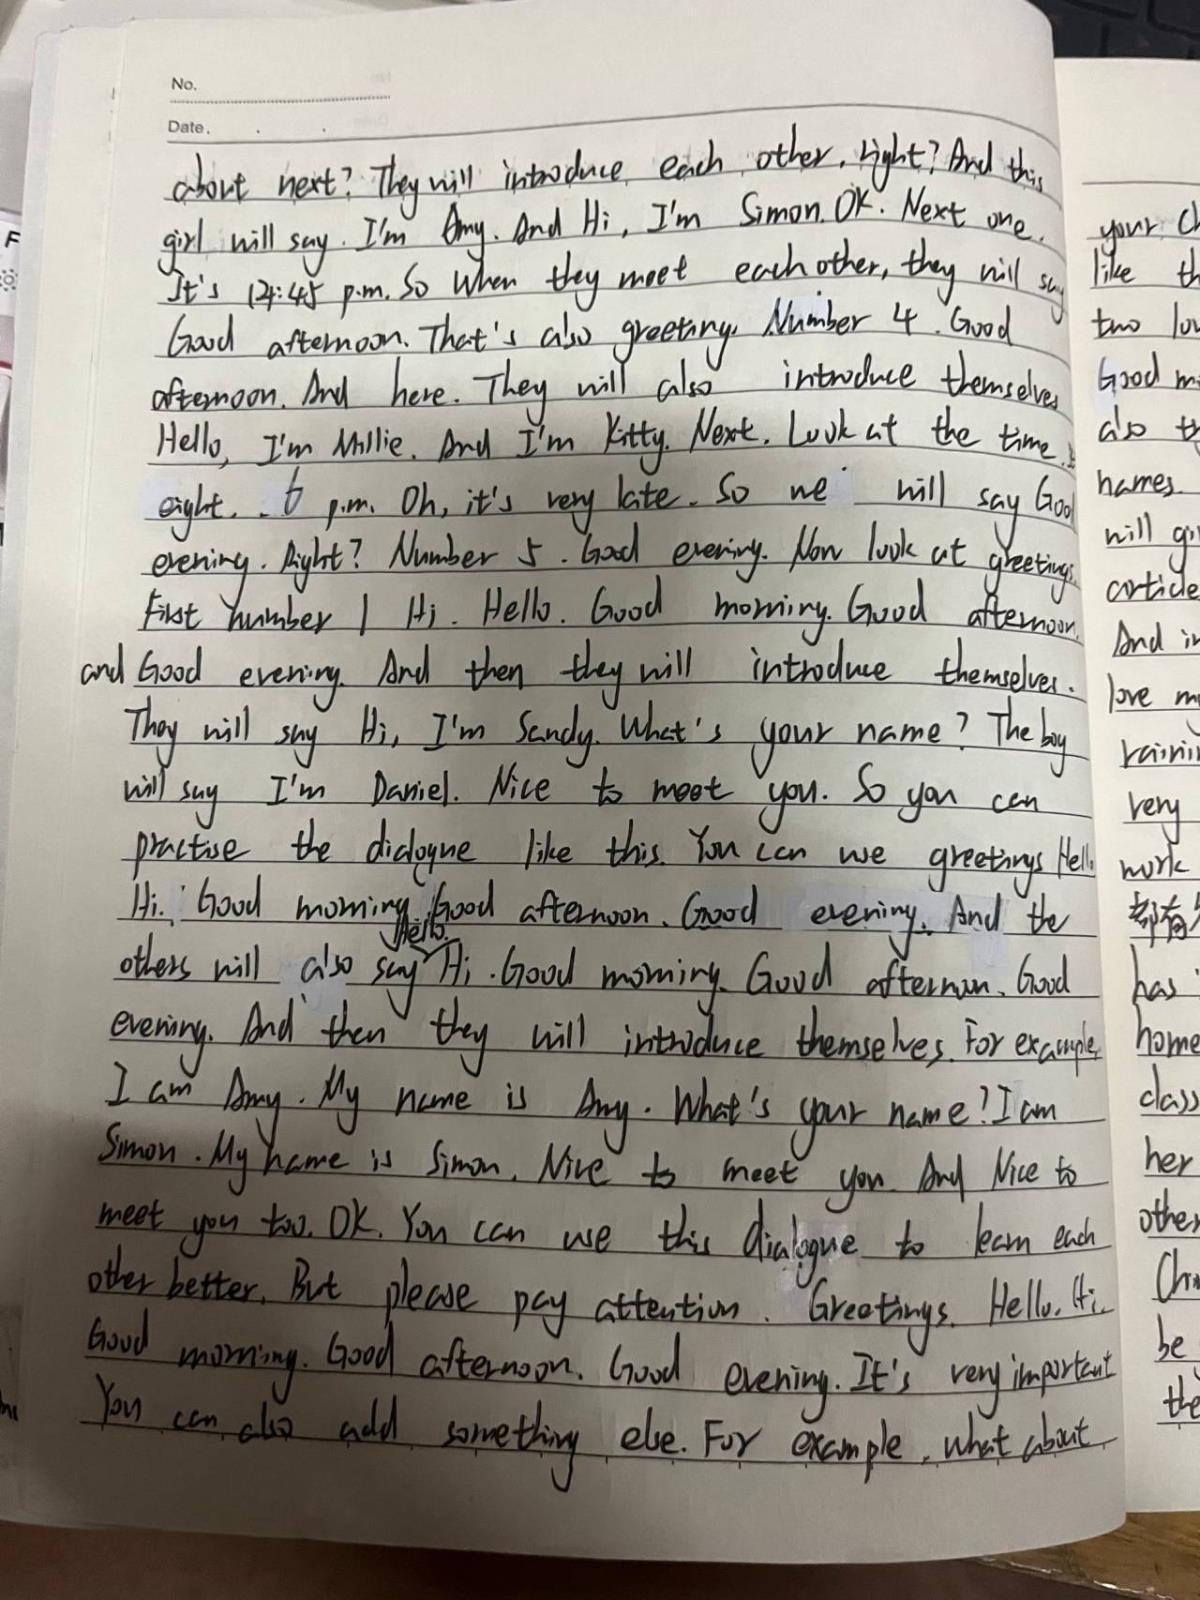 No.
Date.
about next? They will introduce each other, right? And this
girl will say. I'm Amy. And Hi, I'm Simon. OK. Next one.
It's 12:45 p.m. So When they meet each other, they will say
Good afternoon. That's also greeting. Number 4. Good
afternoon. And here. They will also introduce themselves
Hello, I'm Millie. And I'm Kitty. Next. Look at the time.
eight. 6 p.m. Oh, it's very late. So we will say Good
evening. Right? Number 5. Good evening. Now look at greetings
First number 1 Hi. Hello. Good morning. Good afternoon.
and Good evening. And then they will introduce themselves.
They will say Hi, I'm Sandy. What's your name? The boy
will say I'm Daniel. Nice to meet you. So you can
practise the dialogue like this. You can use greetings Hello
Hi. Good morning. Good afternoon. Good evening. And the
Hello.
others will also say Hi. Good morning. Good afternoon. Good
evening. And then they will introduce themselves. For example,
I am Amy. My name is Amy. What's your name? I am
Simon. My name is Simon. Nice to meet you. And Nice to
meet you too. OK. You can use this dialogue to learn each
other better. But please pay attention. Greetings. Hello. Hi.
Good morning. Good afternoon. Good evening. It's very important
You can also add something else. For example, what about
your
like
two
Good
also
names
will
article
And
love
very
work
都有
has
home
class
her
other
be
the